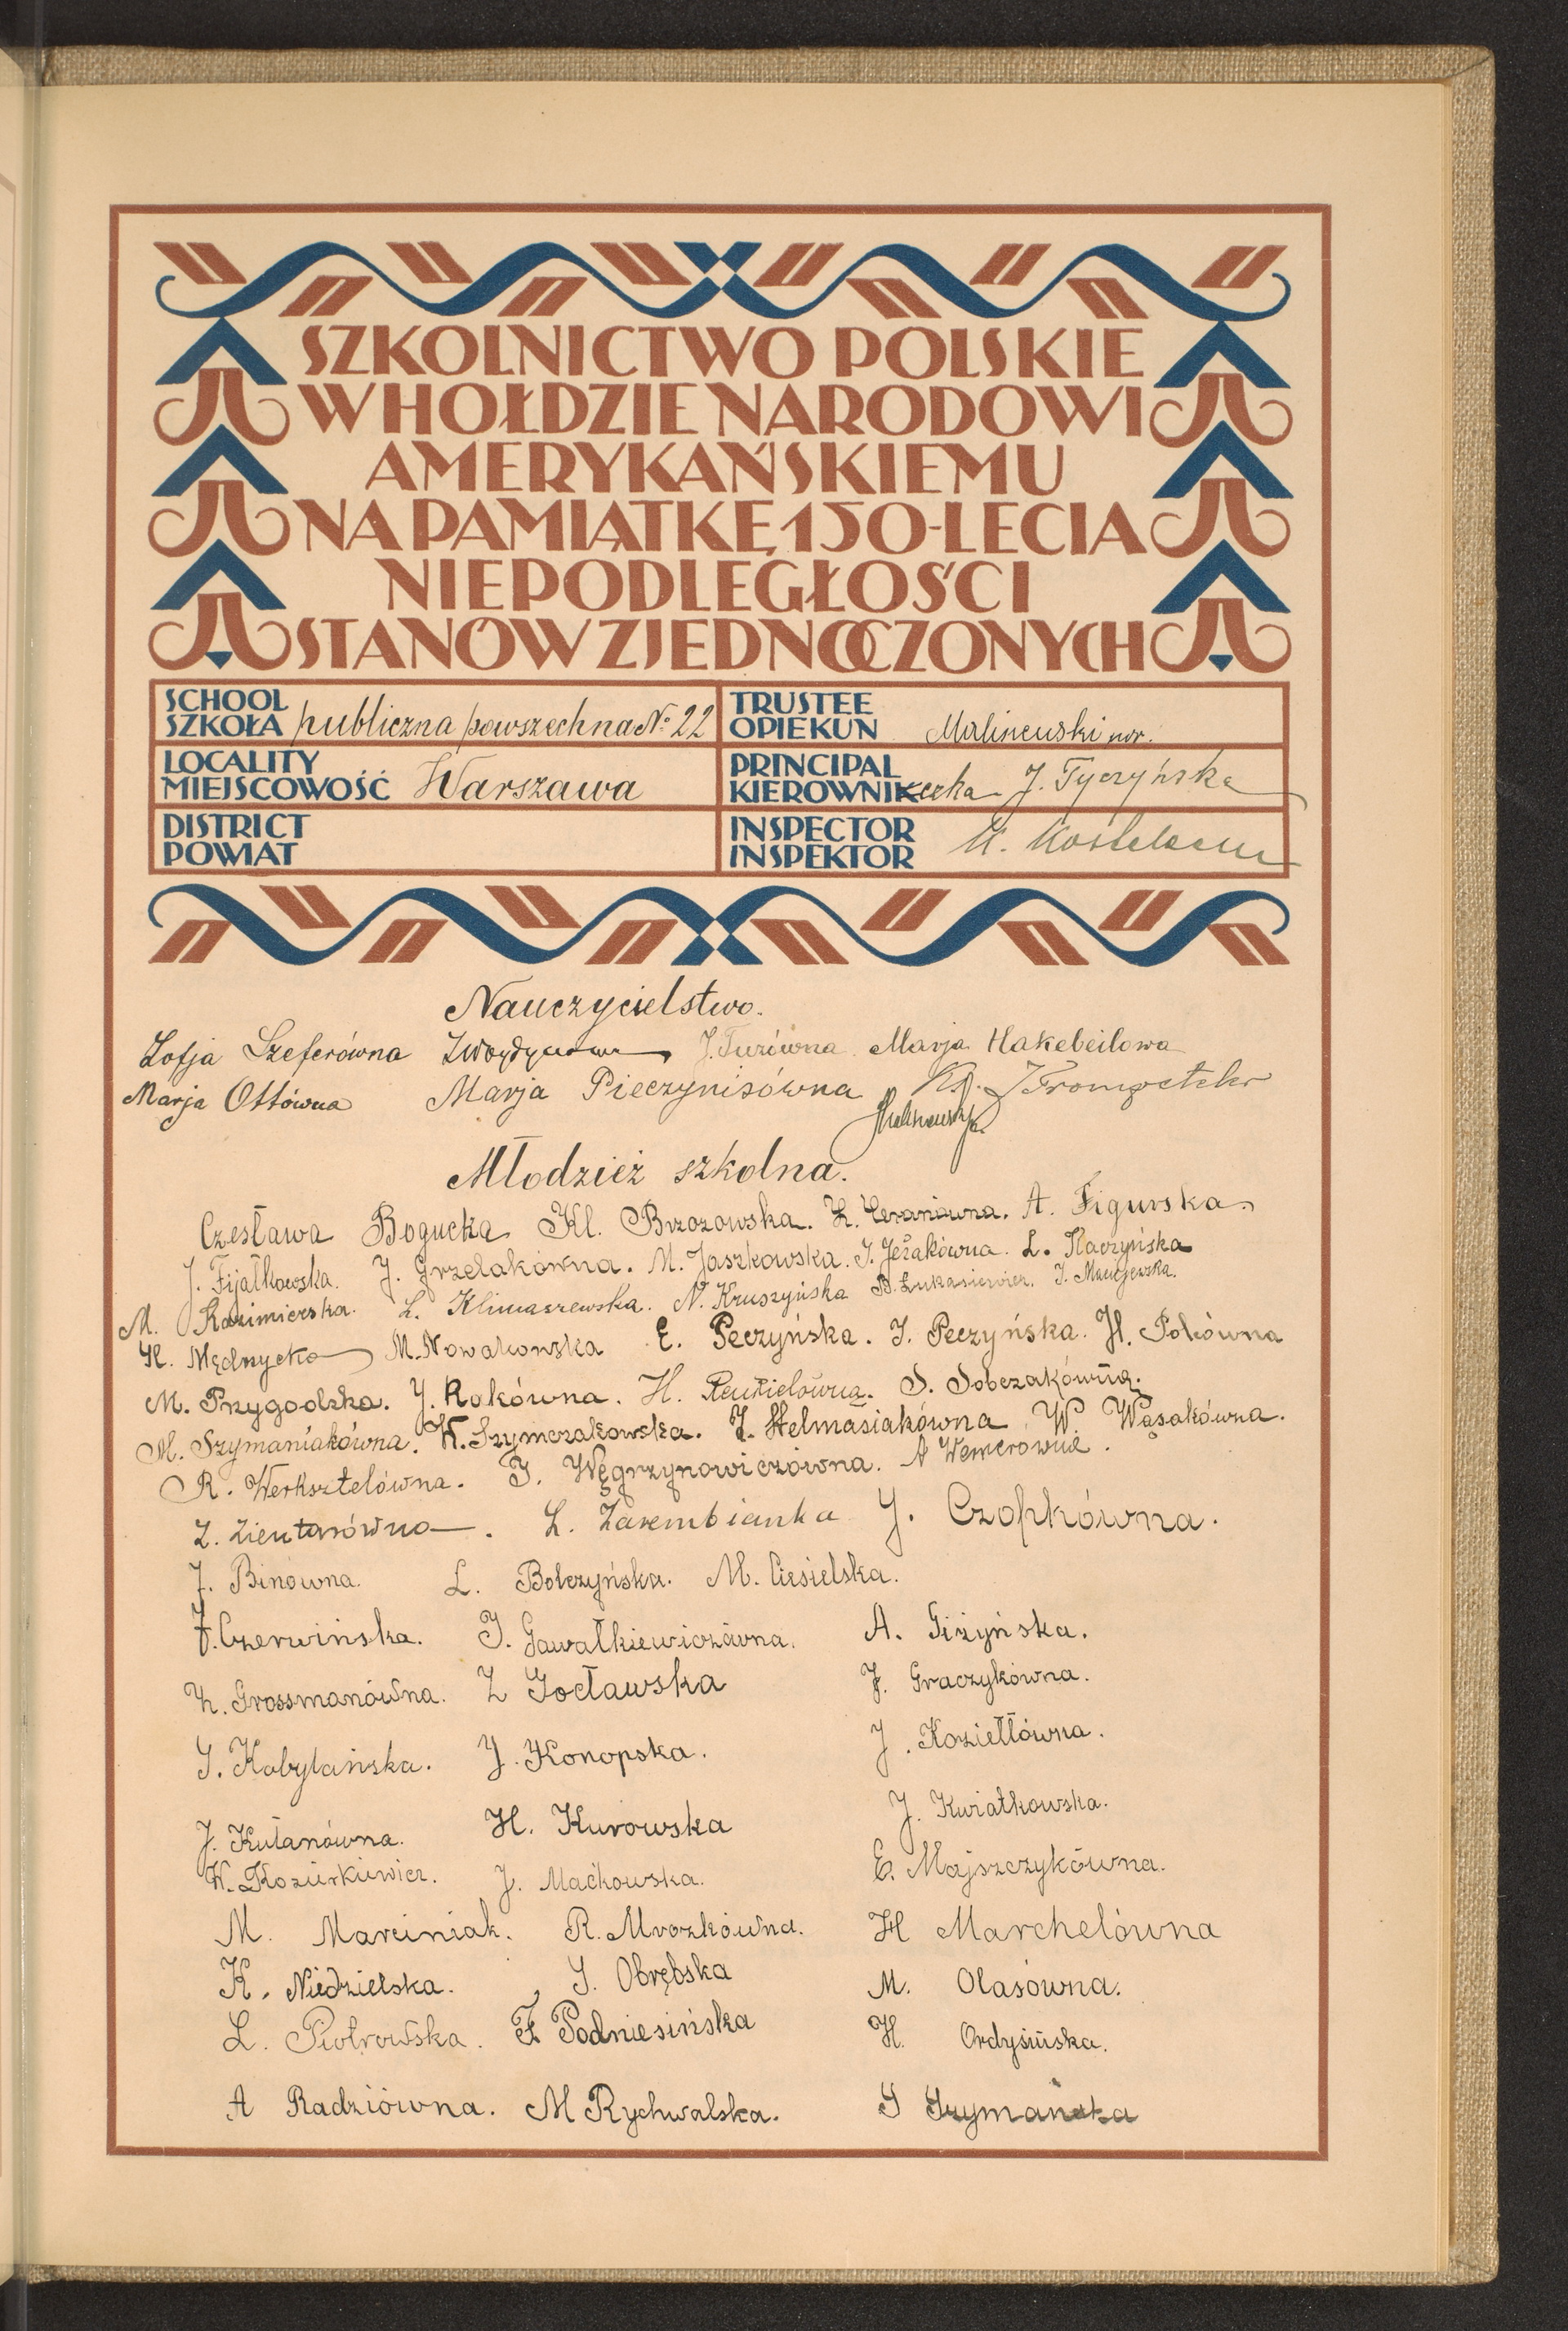 SZKOLNICTWO POLSKIE
W HOŁDZIE NARODOWI
AMERYKAŃSKIEMU
NA PAMIĄTKĘ 150-LECIA
NIEPODLEGŁOŚCI
STANÓW ZJEDNOCZONYCH
SCHOOL
SZKOŁA publiczna powszechna No 22
TRUSTEE
OPIEKUN Malinowski
LOCALITY
MIEJSCOWOŚĆ Warszawa
PRINCIPAL
KIEROWNIczka J. Tyczyńska
DISTRICT
POWIAT
INSPECTOR
INSPEKTOR
Nauczycielstwo.
Zofja Szeferówna J. Turówna Marja Hakebeilowa
Marja Ottówna Marja Pieczynisówna Ks. J
Młodzież szkolna.
Czesława Bogucka Kl. Brzozowska. A. Figurska.
J. Fijałkowska. J. Grzelakówna. M. Jaszkowska. J. Jeżakówna. L. Kaczyńska
M. Kazimierska. L. Klimaszewska. N. Kruszyńska B. Łukasiewicz. J. Maciejewska.
H. Mędrzycka M. Nowakowska E. Peczyńska. J. Peczyńska. H. Polówna
M. Przygodzka. J. Rokówna. H. S. Sobczakówna.
M. Szymaniakówna. K. Szymczakowska. J. Stelmasiakówna W. Wąsakówna.
R. Werksztelówna. J. Węgrzynowiczówna. A Wernerówna.
Z. Zientarówna. Z. Zarembianka J. Czopkówna.
J. Binówna. L. Bolczyńska. M. Ciesielska.
J. Czerwińska. J. Gawałkiewiczówna. A. Giżyńska.
H. Grossmanówna. Z Gocławska J. Graczykówna.
J. Kobylańska. J. Konopska. J. Koziełłówna.
J. Kułanówna. H. Kurowska J. Kwiatkowska.
W. Koziurkiewicz. J. Maćkowska. E. Majszczykówna.
M. Marciniak. R. Mrozkówna. H Marchelówna
K. Niedzielska. J. Obrębska M. Olasówna.
L. Piotrowska. F. Podniesińska H. Ordysińska.
A Radziówna. M Rychwalska. J Szymańska